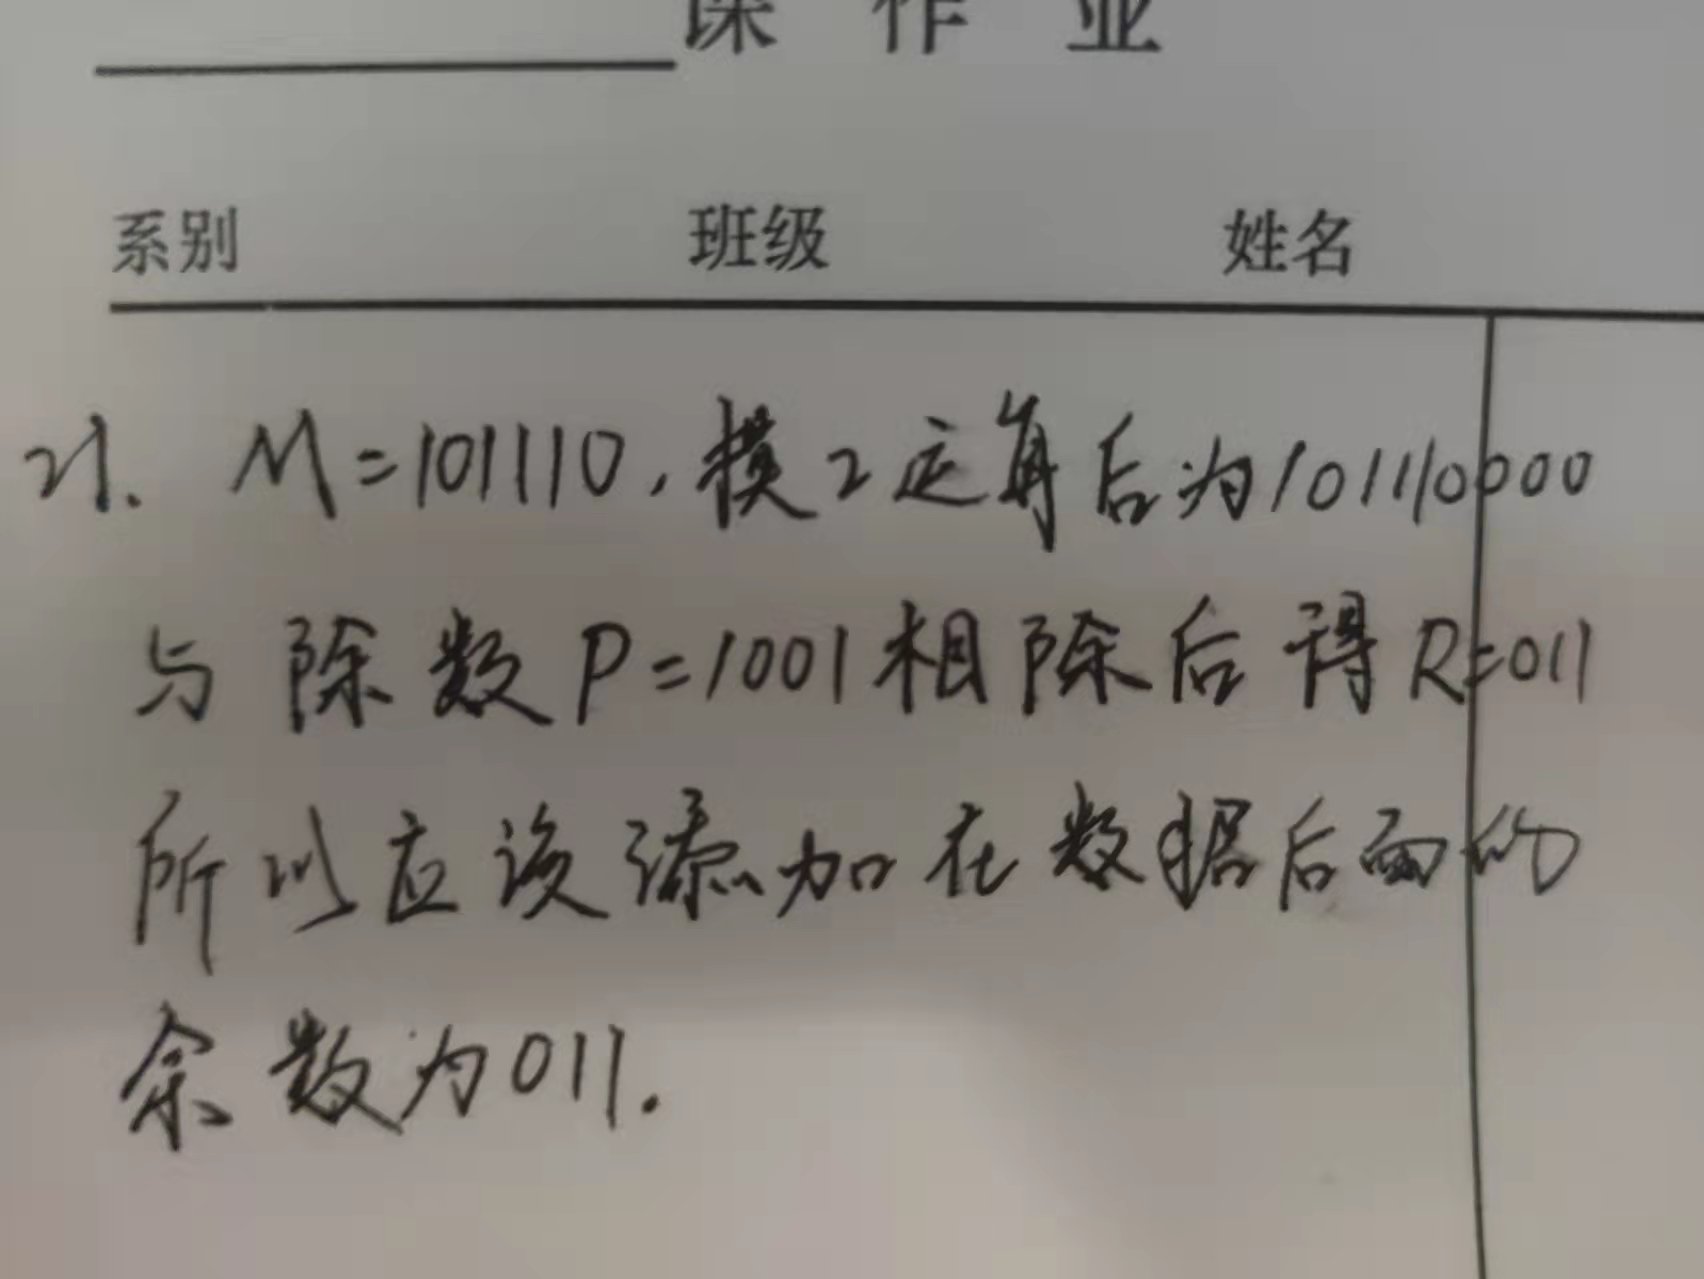 课 作 业
系别 班级 姓名
21. M=101110,模2运算后为101110000
与除数P=1001相除后得R=011
所以应该添加在数据后面的
余数为011.